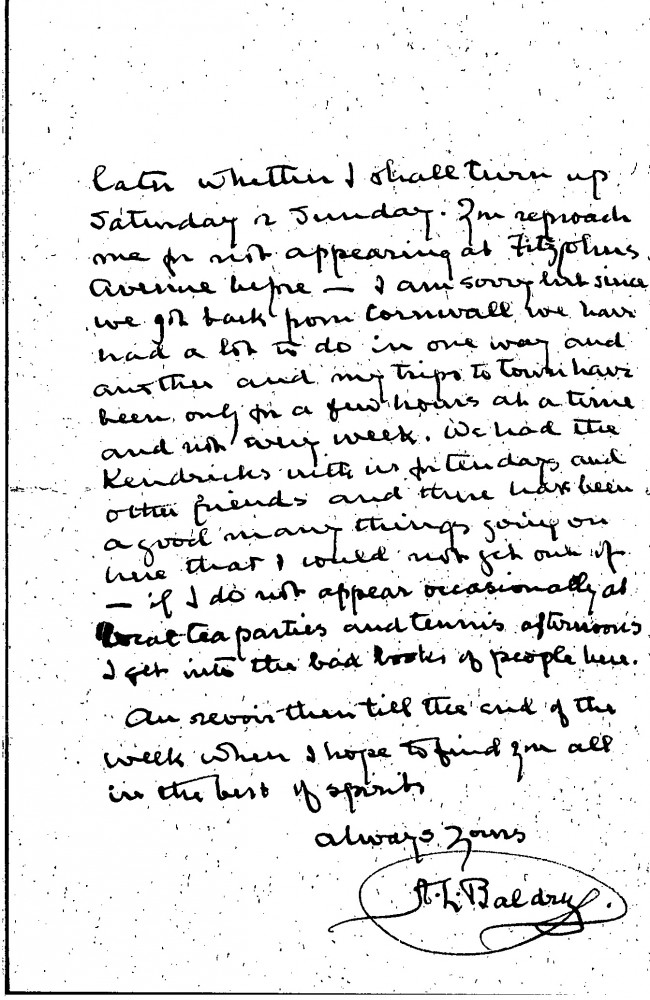 later whether I shall turn up
Saturday or Sunday. You reproach
me for not appearing at Fitzjohns
Avenue before — I am sorry but since
we got back from Cornwall we have
had a lot to do in one way and
another and my trips to town have
been only for a few hours at a time
and not every week. We had the
Kendricks with us for ten days and
other friends and there has been
a good many things going on
here that I could not get out of
— if I do not appear occasionally at
local tea parties and tennis afternoons
I get into the bad books of people here.
Au revoir then till the end of the
week when I hope to find you all
in the best of spirits
Always Yours
A. L. Baldry.